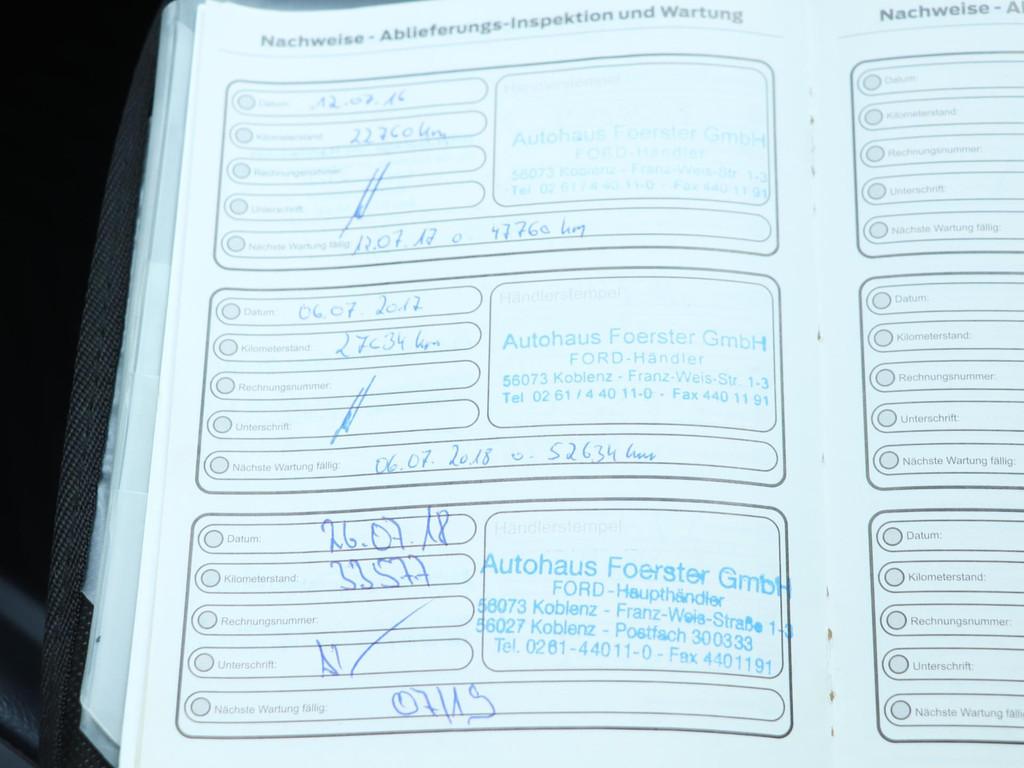 Nachweise - Ablieferungs-Inspektion und Wartung
Datum: 12.07.16
Kilometerstand: 22760 km
Rechnungsnummer:
Unterschrift:
Nächste Wartung fällig: 12.07.17 o. 47760 km
Händlerstempel
Autohaus Foerster GmbH
FORD-Händler
56073 Koblenz - Franz-Weis-Str. 1-3
Tel 02 61 / 4 40 11-0 - Fax 440 11 91
Datum: 06.07.2017
Kilometerstand: 27634 km
Rechnungsnummer:
Unterschrift:
Nächste Wartung fällig: 06.07.2018 o. 52634 km
Händlerstempel
Autohaus Foerster GmbH
FORD-Händler
56073 Koblenz - Franz-Weis-Str. 1-3
Tel 02 61 / 4 40 11-0 - Fax 440 11 91
Datum: 26.07.18
Kilometerstand: 33577
Rechnungsnummer:
Unterschrift:
Nächste Wartung fällig: 07/19
Händlerstempel
Autohaus Foerster GmbH
FORD-Haupthändler
56073 Koblenz - Franz-Weis-Straße 1-3
56027 Koblenz - Postfach 300333
Tel. 0261-44011-0 - Fax 4401191
Nachweise - A
Datum:
Kilometerstand:
Rechnungsnummer:
Unterschrift:
Nächste Wartung fällig:
Datum:
Kilometerstand:
Rechnungsnummer:
Unterschrift:
Nächste Wartung fällig:
Datum:
Kilometerstand:
Rechnungsnummer:
Unterschrift:
Nächste Wartung fällig